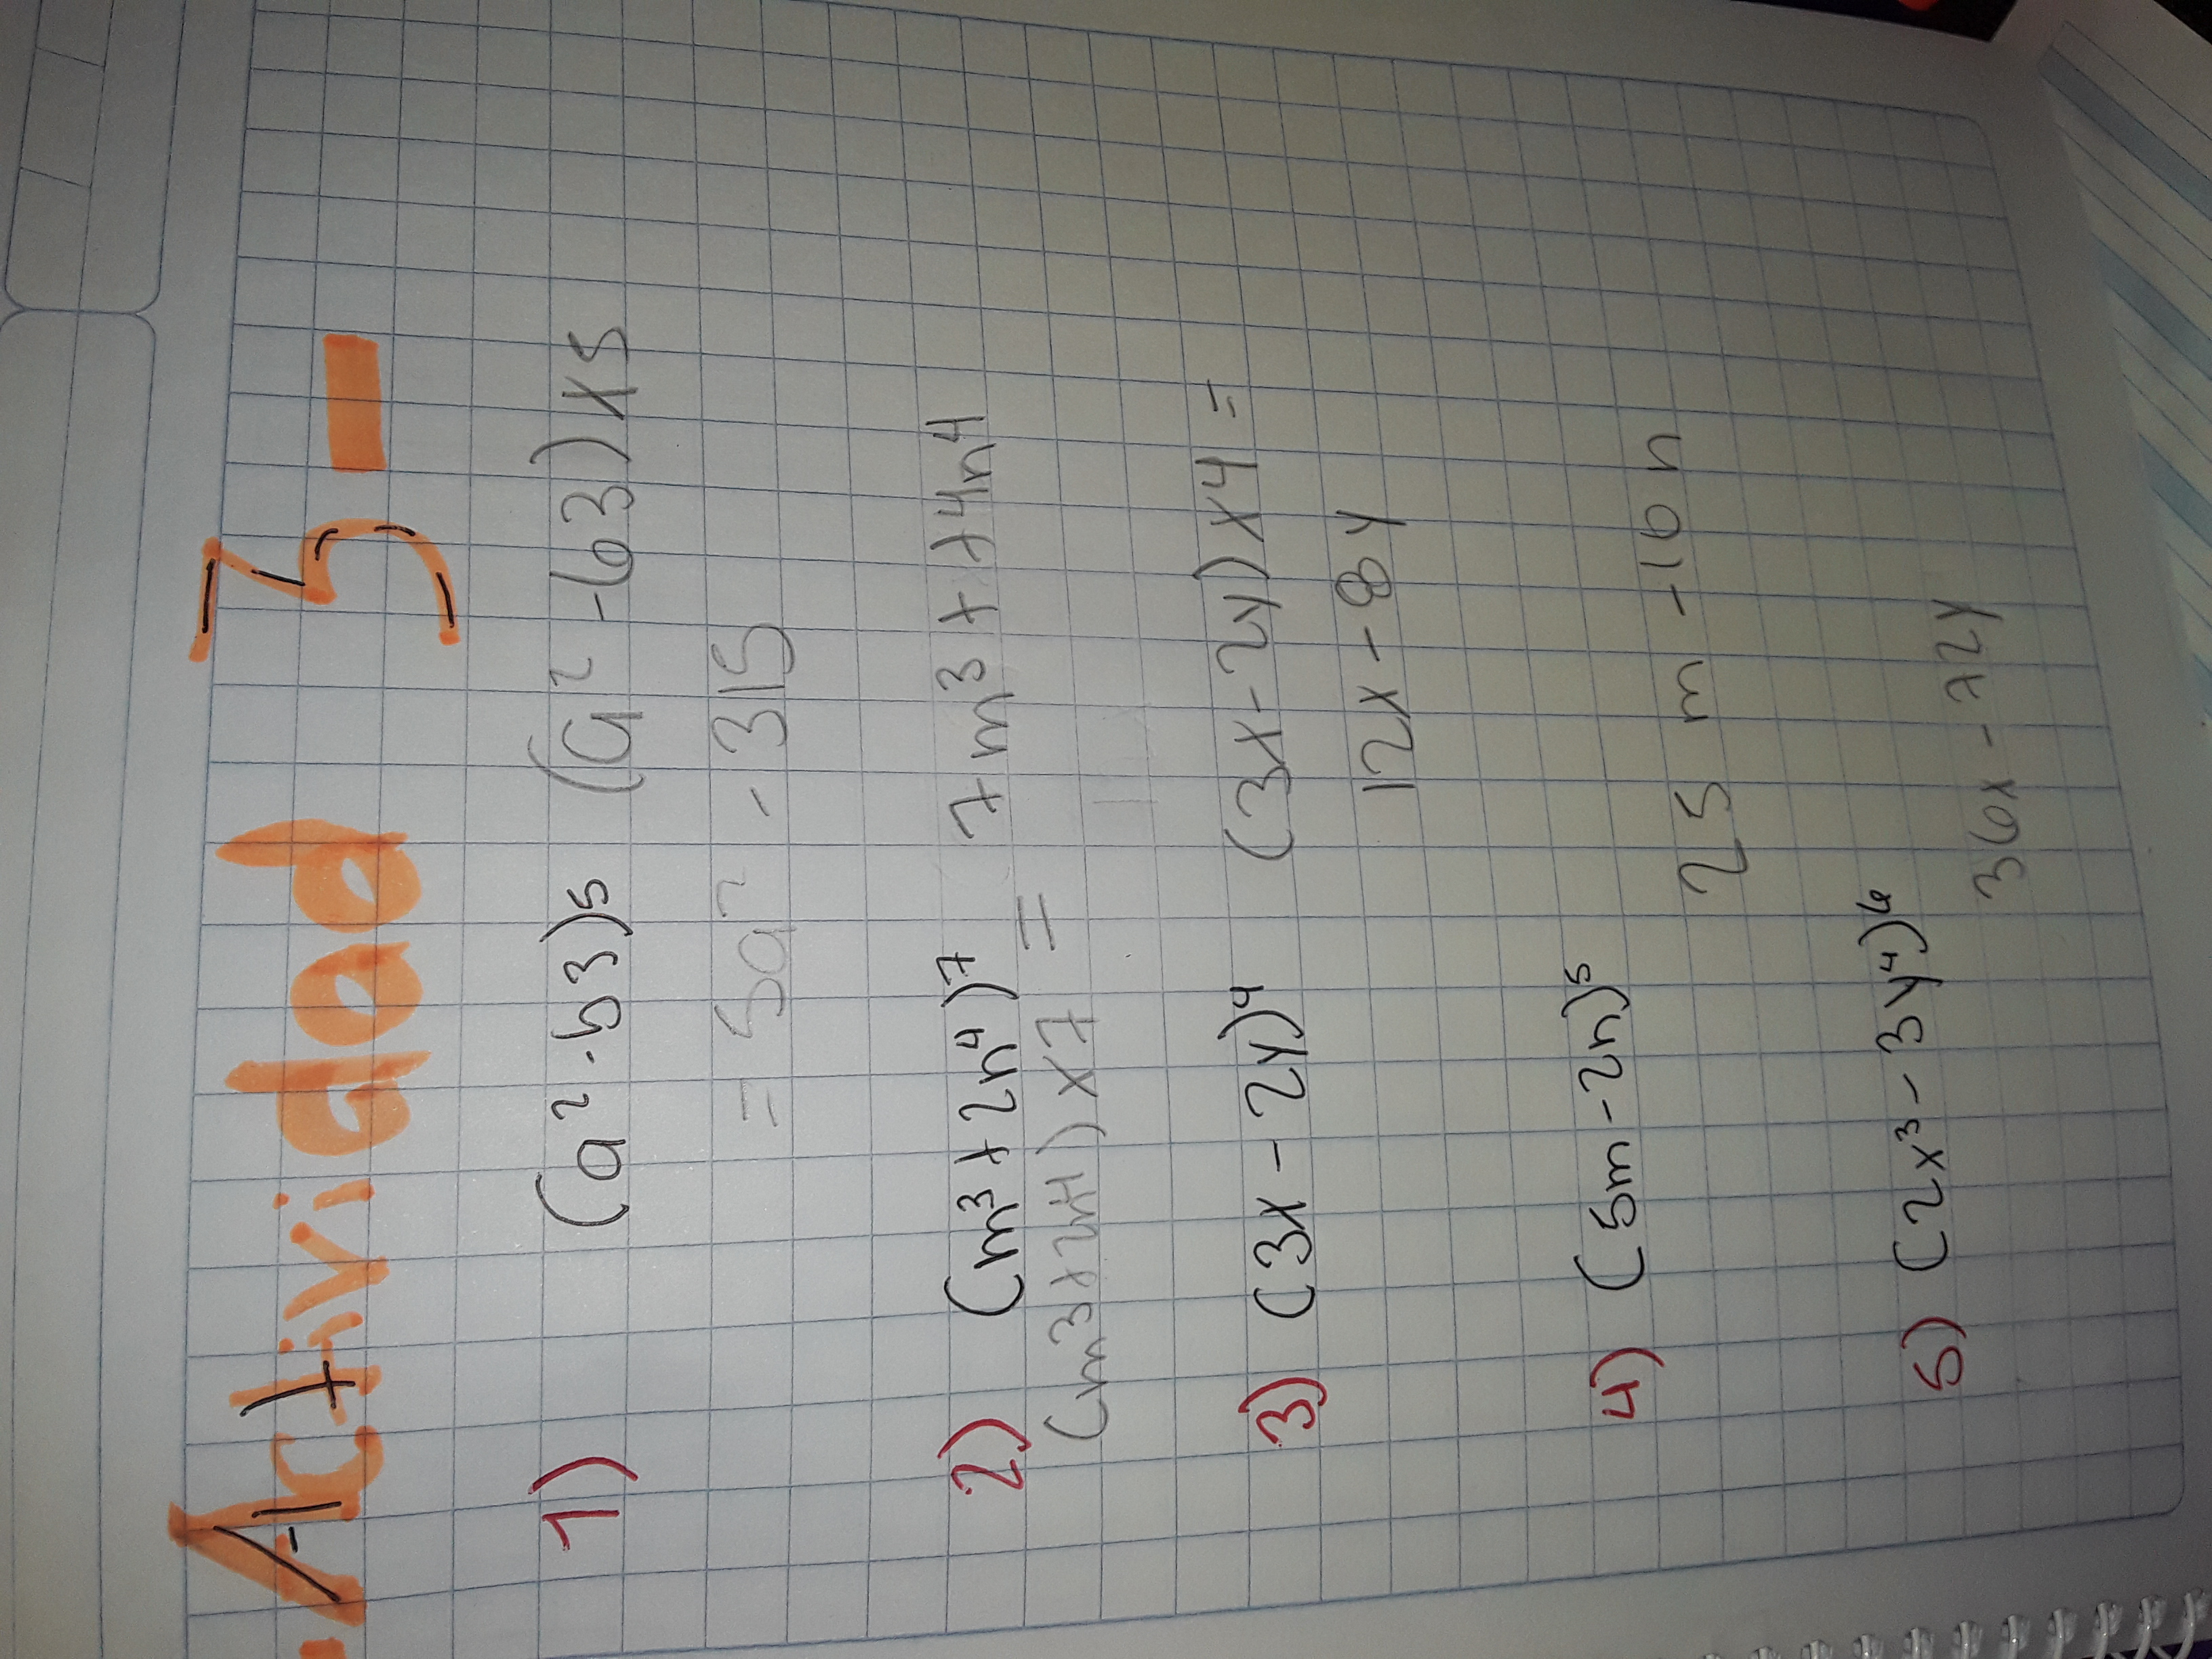 Actividad 3
1) (a² - b3)⁵ (a² - 63) x 5
= 5a² - 315
2) (m³ + 2n⁴)⁷ 7m³ + 14n⁴
(m3 + 2n4) x 7 =
3) (3x - 2y)⁴ (3x - 2y) x 4 =
12x - 8y
4) (5m - 2n)⁵
25 m - 10 n
5) (2x³ - 3y⁴)⁶
36x - 72y